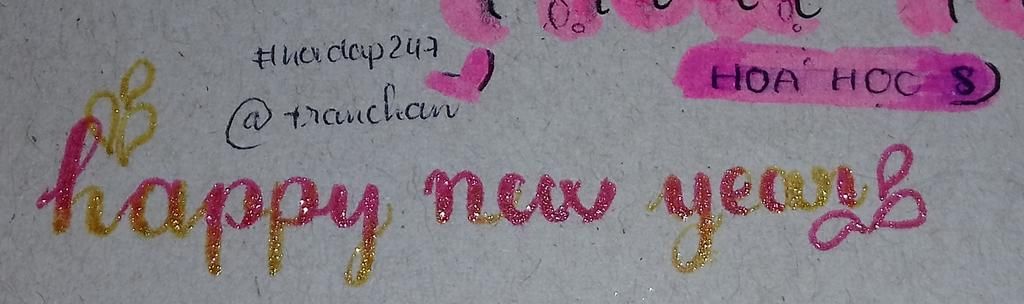 #hoidap247
HOÁ HỌC 8
@tranchan
happy new year